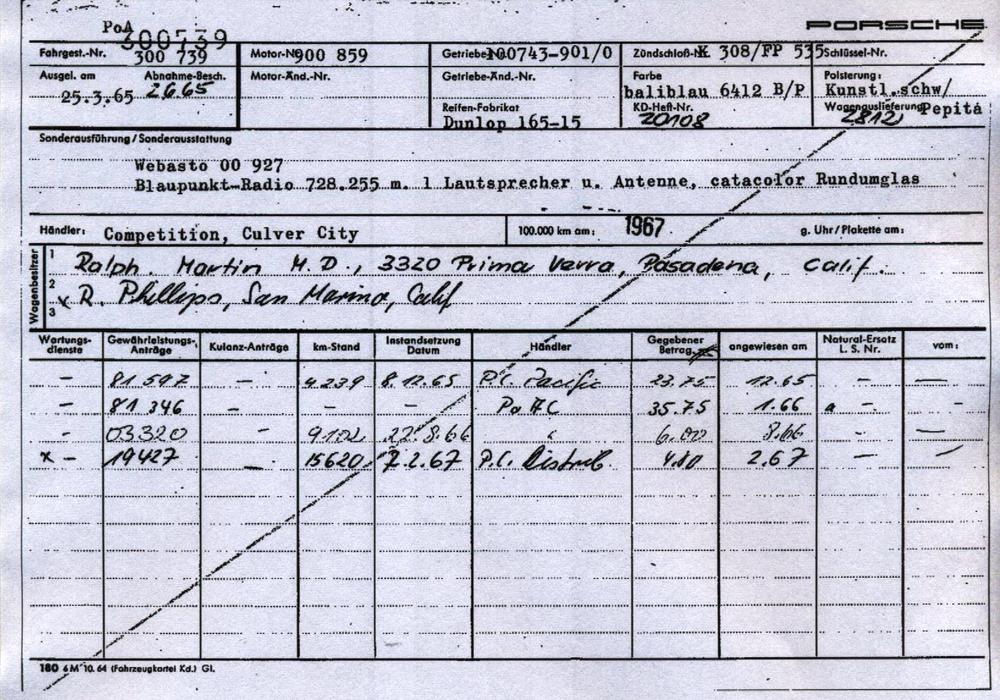 PoA
300539
PORSCHE
Fahrgest.-Nr. 300 739 Motor-Nr. 900 859 Getriebe-Nr. 100743-901/0 Zündschloß-Nr. K 308/FP 535 Schlüssel-Nr.
Ausgel. am Abnahme-Besch. Motor-Änd.-Nr. Getriebe-Änd.-Nr. Farbe Polsterung:
25.3.65 2665 baliblau 6412 B/P Kunstl.schw/
Reifen-Fabrikat KD-Heft-Nr. Wagenauslieferung Pepita
Dunlop 165-15 20108 2812
Sonderausführung/Sonderausstattung
Webasto 00 927
Blaupunkt-Radio 728.255 m. 1 Lautsprecher u. Antenne, catacolor Rundumglas
Händler: Competition, Culver City 100.000 km am: 1967 g. Uhr/Plakette am:
Wagenbesitzer
1 Ralph. Martin M.D., 3320 Prima Verra, Pasadena, Calif.
2 x R. Phillips, San Marino, Calif
3
Wartungs- Gewährleistungs- Kulanz-Anträge km-Stand Instandsetzung Händler Gegebener angewiesen am Natural-Ersatz vom:
dienste Anträge Datum Betrag L. S. Nr.
– 81 597 – 4239 8.12.65 P.C. Pacific 23.75 12.65 – –
– 81 346 – – – Po AC 35.75 1.66 a – –
– 03320 – 9102 22.8.66 " 6.00 8.66 – –
x – 19427 – 15620 7.2.67 P.C. Distrib. 4.80 2.67 – –
180 6 M 10. 64 (Fahrzeugkartei Kd.) Gl.